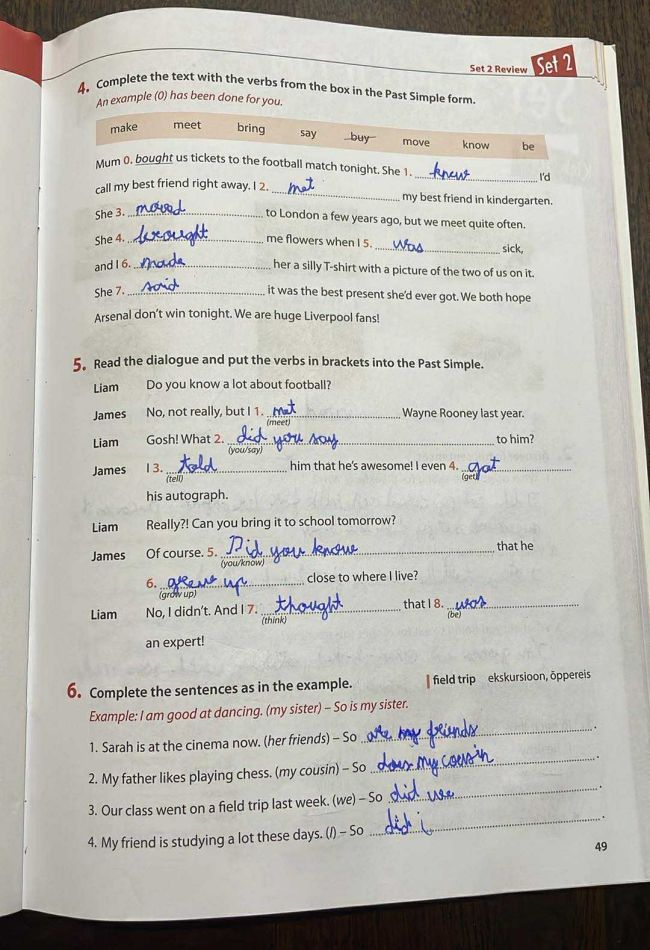 Set 2 Review Set 2
4. Complete the text with the verbs from the box in the Past Simple form.
An example (0) has been done for you.
make meet bring say buy move know be
Mum 0. bought us tickets to the football match tonight. She 1. knew I'd
call my best friend right away. I 2. met my best friend in kindergarten.
She 3. moved to London a few years ago, but we meet quite often.
She 4. brought me flowers when I 5. was sick,
and I 6. made her a silly T-shirt with a picture of the two of us on it.
She 7. said it was the best present she'd ever got. We both hope
Arsenal don't win tonight. We are huge Liverpool fans!
5. Read the dialogue and put the verbs in brackets into the Past Simple.
Liam Do you know a lot about football?
James No, not really, but I 1. met Wayne Rooney last year.
(meet)
Liam Gosh! What 2. did you say to him?
(you/say)
James I 3. told him that he's awesome! I even 4. got
(tell) (get)
his autograph.
Liam Really?! Can you bring it to school tomorrow?
James Of course. 5. Did you know that he
(you/know)
6. grew up close to where I live?
(grow up)
Liam No, I didn't. And I 7. thought that I 8. was
(think) (be)
an expert!
6. Complete the sentences as in the example. field trip ekskursioon, õppereis
Example: I am good at dancing. (my sister) – So is my sister.
1. Sarah is at the cinema now. (her friends) – So are my friends.
2. My father likes playing chess. (my cousin) – So does my cousin.
3. Our class went on a field trip last week. (we) – So did we.
4. My friend is studying a lot these days. (I) – So did i.
49